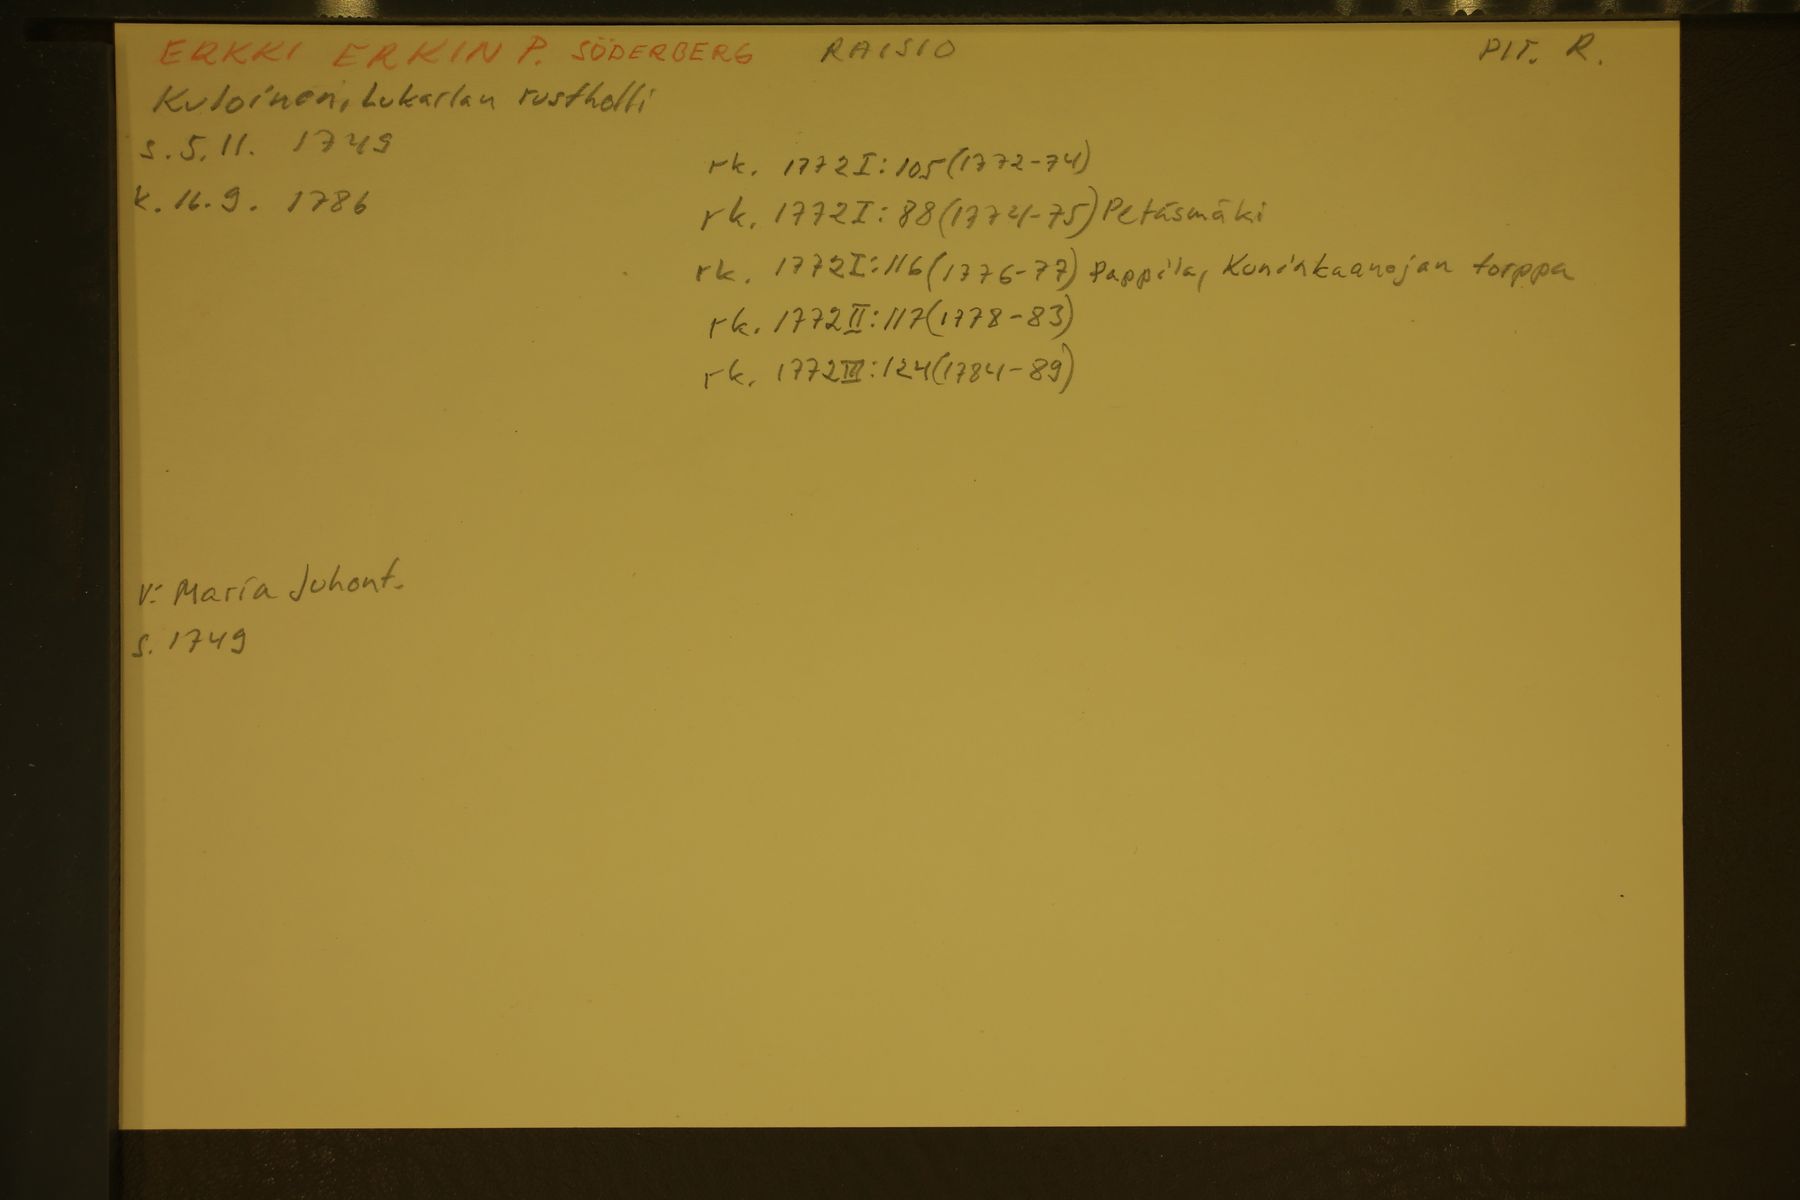 ERKKI ERKIN P. SÖDERBERG RAISIO PIT. R.
Kuloinen, Lukarlan rustholli
s. 5. 11. 1749
k. 16. 9. 1786
rk. 1772 I: 105 (1772-74)
rk. 1772 I: 88 (1774-75) Petäsmäki
rk. 1772 I: 116 (1776-77) Pappila, Kuninkaanojan torppa
rk. 1772 II: 117 (1778-83)
rk. 1772 III: 124 (1784-89)
V: Maria Juhont.
s. 1749